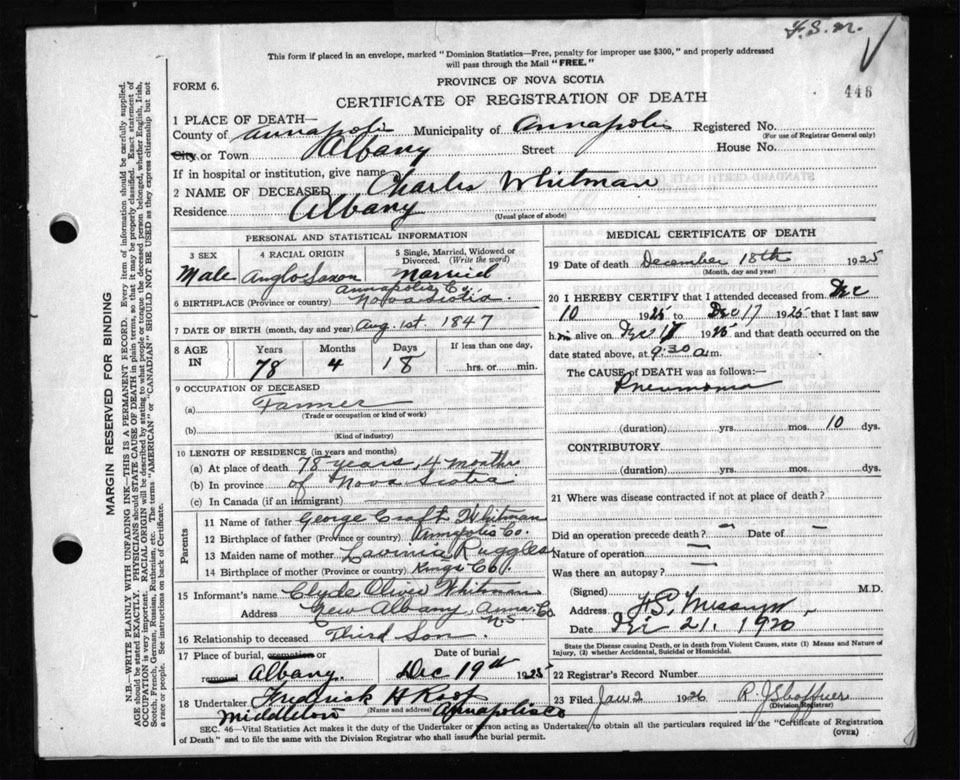 F.S.M.
This form if placed in an envelope, marked "Dominion Statistics—Free, penalty for improper use $300," and properly addressed
will pass through the Mail "FREE."
FORM 6.
PROVINCE OF NOVA SCOTIA
446
CERTIFICATE OF REGISTRATION OF DEATH
1 PLACE OF DEATH—
County of Annapolis Municipality of Annapolis Registered No.
(For use of Registrar General only)
City or Town Albany Street House No.
If in hospital or institution, give name
2 NAME OF DECEASED Charles Whitman
Residence Albany
(Usual place of abode)
PERSONAL AND STATISTICAL INFORMATION
3 SEX Male
4 RACIAL ORIGIN Anglo Saxon
5 Single, Married, Widowed or Divorced. (Write the word) Married
6 BIRTHPLACE (Province or country) Annapolis Co. Nova Scotia.
7 DATE OF BIRTH (month, day and year) Aug. 1st. 1847
8 AGE IN Years 78 Months 4 Days 18 If less than one day, hrs. or min.
9 OCCUPATION OF DECEASED
(a) Farmer
(Trade or occupation or kind of work)
(b)
(Kind of industry)
10 LENGTH OF RESIDENCE (in years and months)
(a) At place of death 78 years, 4 months
(b) In province of Nova Scotia
(c) In Canada (if an immigrant)
Parents
11 Name of father George Craft Whitman
12 Birthplace of father (Province or country) Annapolis Co.
13 Maiden name of mother Lavinia Ruggles
14 Birthplace of mother (Province or country) Kings Co.
15 Informant's name Clyde Whitman
Address Albany, Anna. Co. N.S.
16 Relationship to deceased Third Son
17 Place of burial, cremation or removal Albany Date of burial Dec 19th 1925
18 Undertaker Frederick H Roop
(Name and address)
Middleton Annapolis Co
MEDICAL CERTIFICATE OF DEATH
19 Date of death December 18th 1925
(Month, day and year)
20 I HEREBY CERTIFY that I attended deceased from Dec
10 1925 to Dec 17 1925 that I last saw
him alive on Dec 17 1925 and that death occurred on the
date stated above, at 9.30 a.m.
The CAUSE of DEATH was as follows:—
Pneumonia
(duration) yrs. mos. 10 dys.
CONTRIBUTORY
(duration) yrs. mos. dys.
21 Where was disease contracted if not at place of death?
Did an operation precede death? Date of
Nature of operation
Was there an autopsy?
(Signed) M.D.
Address
Date 21. 1925
State the Disease causing Death, or in death from Violent Causes, state (1) Means and Nature of
Injury, (2) whether Accidental, Suicidal or Homicidal.
22 Registrar's Record Number
23 Filed Jan 2 1926 R. J. Shaffner
(Division Registrar)
SEC. 46—Vital Statistics Act makes it the duty of the Undertaker or person acting as Undertaker to obtain all the particulars required in the "Certificate of Registration
of Death" and to file the same with the Division Registrar who shall issue the burial permit.
(OVER)
MARGIN RESERVED FOR BINDING
N.B.—WRITE PLAINLY WITH UNFADING INK—THIS IS A PERMANENT RECORD. Every item of information should be carefully supplied.
AGE should be stated EXACTLY. PHYSICIANS should STATE CAUSE OF DEATH in plain terms, so that it may be properly classified. Exact statement of
OCCUPATION is very important. RACIAL ORIGIN will be described by stating to what people or tongue the deceased person belonged, whether English, Irish,
Scotch, French, German, Russian, Ruthenian, etc. The terms "AMERICAN" or "CANADIAN" SHOULD NOT BE USED as they express citizenship but not
a race or people. See instructions on back of Certificate.